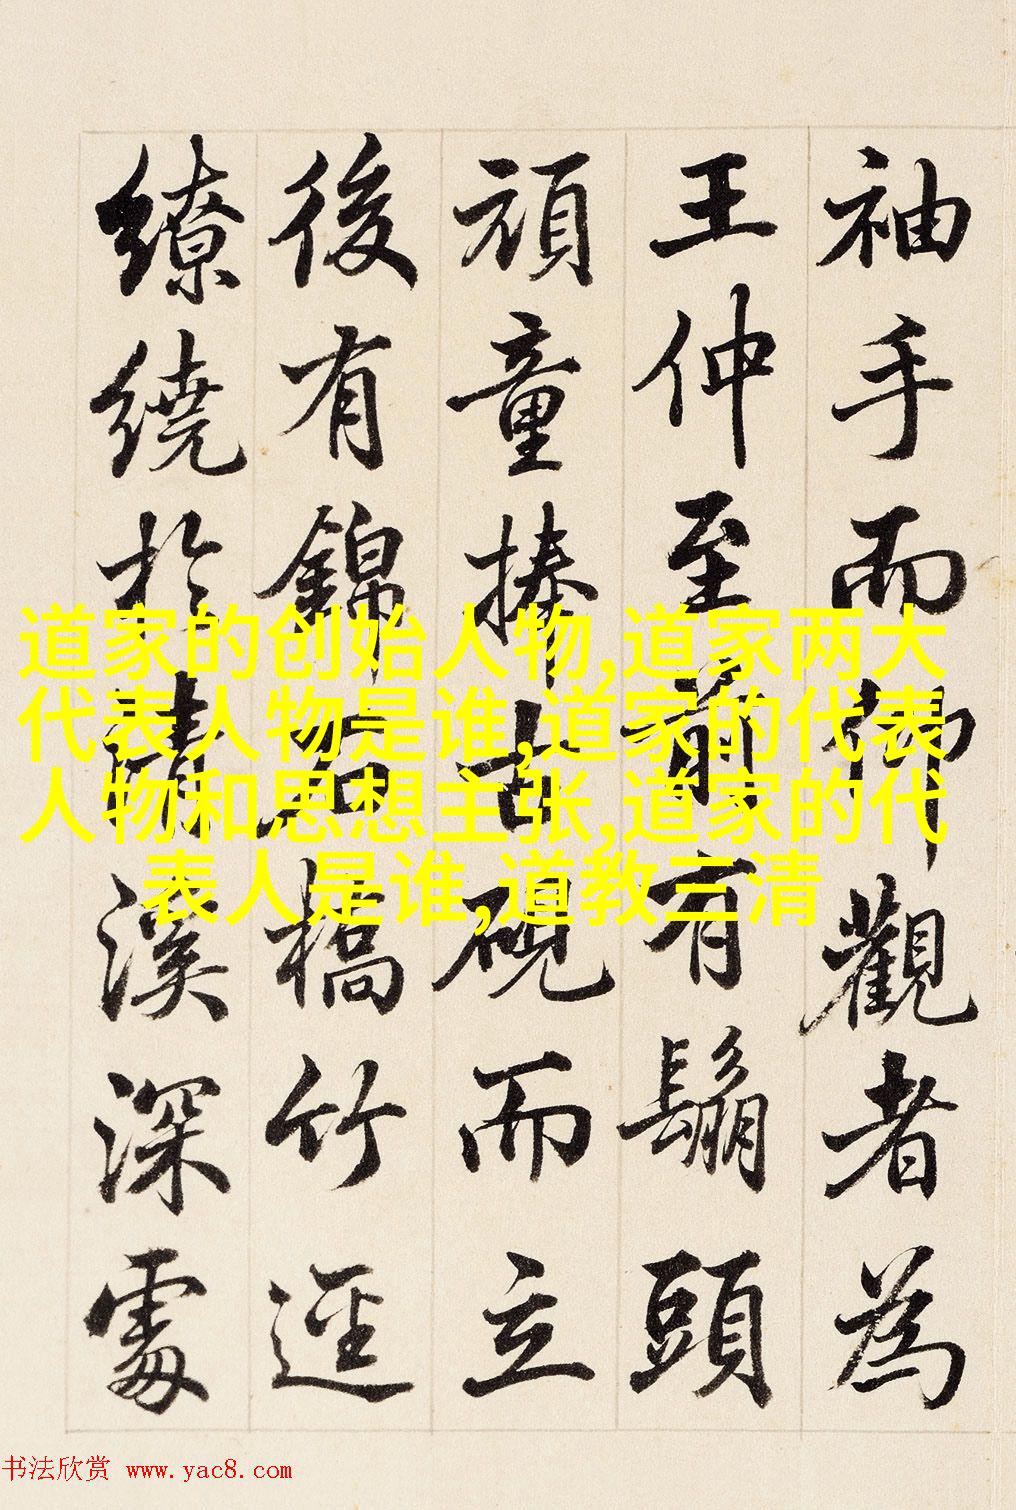 袖手而仰觀者為
王仲至前有鬅頭
頑童捧古硯而立
後有錦石橋竹逕
繚繞於清溪深處
道家的创始人物,道家两大
代表人物是谁,道家的代表
人物和思想主张,道家的代
表人是谁,道教三清
书法欣赏 www.yac8.com